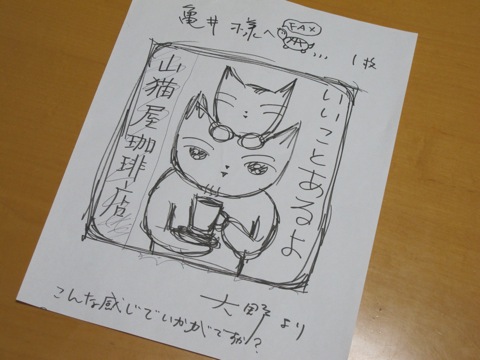 亀井様へ FAX 1枚
いいことあるよ
山猫屋珈琲店
大野より
こんな感じでいかがですか?